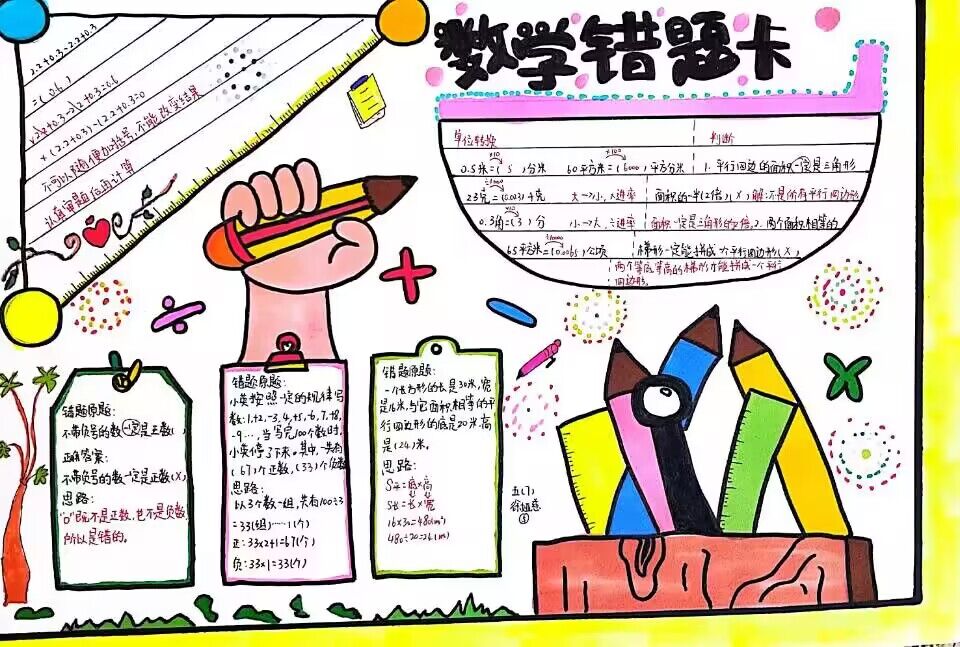 数学错题卡
2.2+0.3-2.2+0.3
=(0.6)
2.2+0.3-2.2+0.3=0.6
×(2.2+0.3)-(2.2+0.3)=0
不可以随便加括号,不能改变结果
认真审题后再计算
单位转换
判断
0.5米=(5)分米 60平方米=(6000)平方分米
×10 ×100
1.平行四边的面积一定是三角形
23克=(0.023)千克 大→小,×进率
÷1000
面积的一半(2倍)(×)解:不是所有平行四边形
0.3角=(3)分 小→大,÷进率
×10
面积一定是三角形的2倍。2.两个面积相等的
65平方米=(0.0065)公顷
÷10000
梯形一定能拼成一个平行四边形(×)
两个等底等高的梯形才能拼成一个平行
四边形。
错题原题:
不带负号的数一定是正数(
正确答案:
不带负号的数一定是正数(×)
思路:
"0"既不是正数,也不是负数,
所以是错的。
错题原题:
小英按照一定的规律写
数:1,+2,-3,4,+5,-6,7,+8,
-9…,当写完100个数时,
小英停了下来。其中一共有
(67)个正数,(33)个负数
思路:
以3个数一组,共有100÷3
=33(组)……1(个)
正:33×2+1=67(个)
负:33×1=33(个)
错题原题:
一个长方形的长是30米,宽
是16米,与它面积相等的平
行四边形的底是20米,高
是(24)米。
思路:
S平=底×高
S长=长×宽
16×30=480(m²)
480÷20=24(m)
五(7)